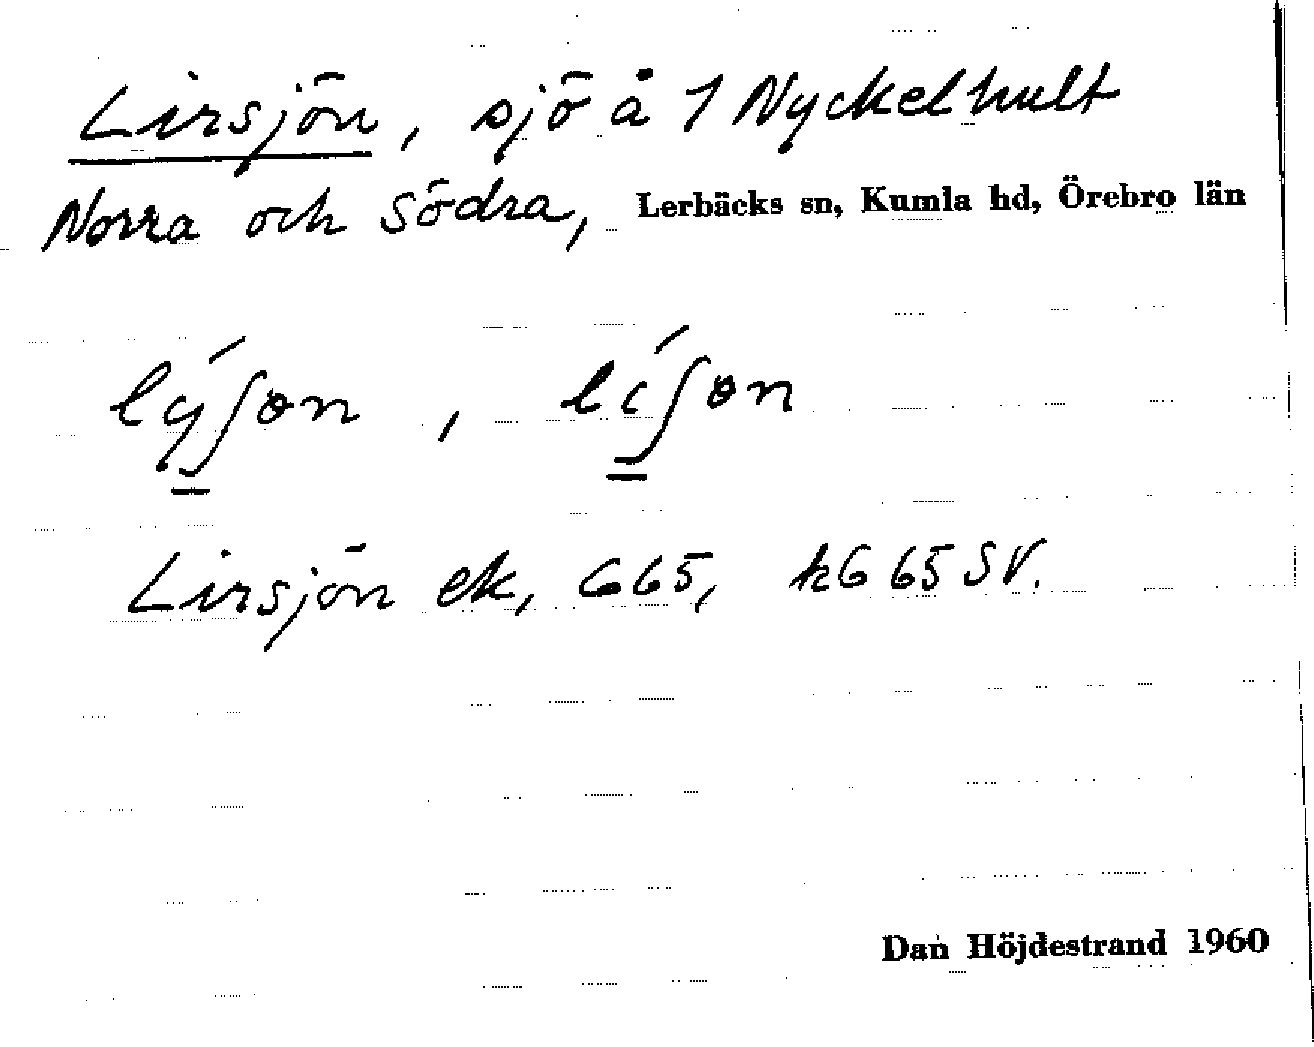 Lirsjön, sjö å 1 Nyckelhult
Norra och Södra, Lerbäcks sn, Kumla hd, Örebro län
lýʃɵn, líʃɵn
Lirsjön ek, G65, hG65SV.
Dan Höjdestrand 1960